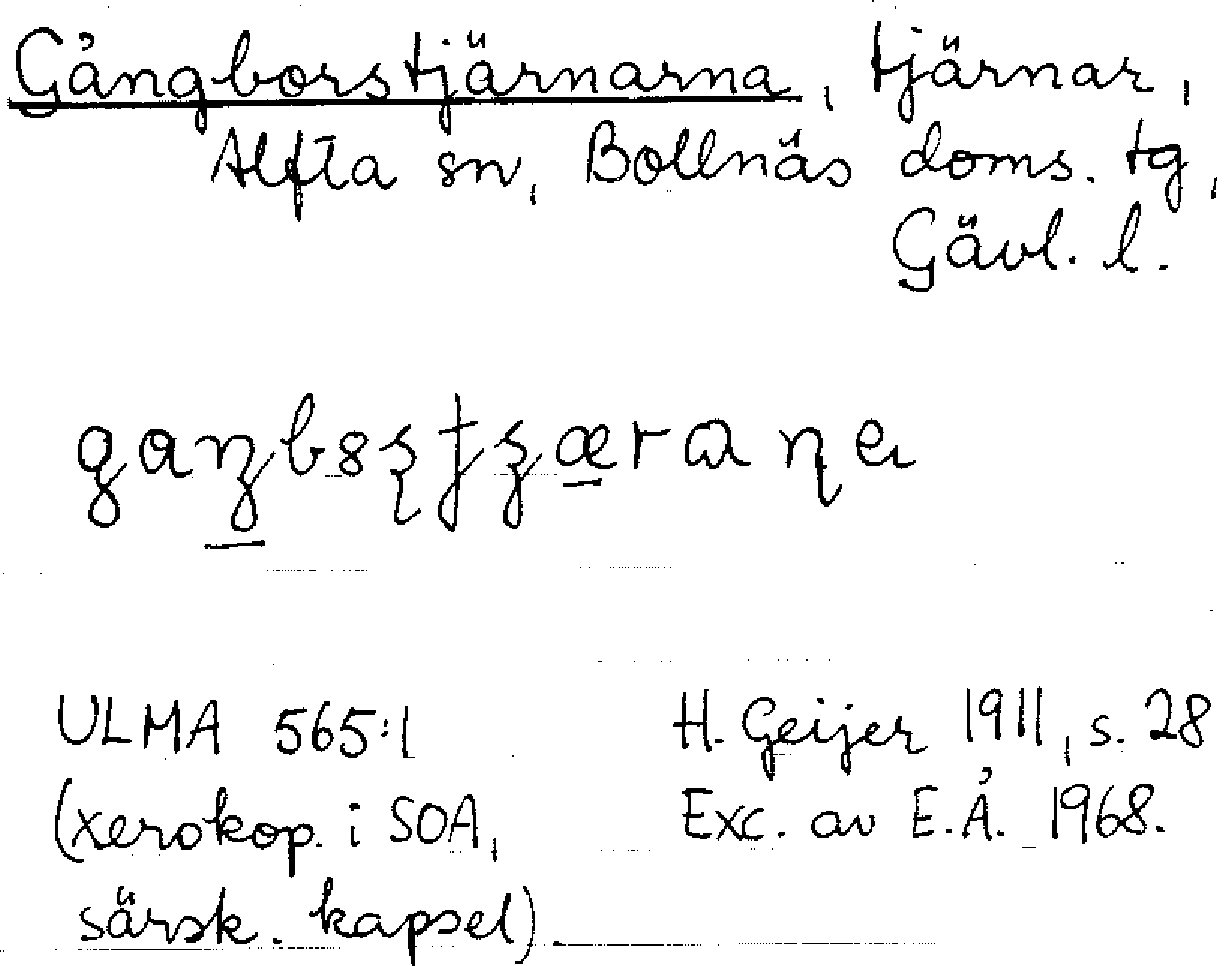 Gångborstjärnarna, tjärnar,
Alfta sn, Bollnäs doms. tg,
Gävl. l.
ULMA 565:1
H. Geijer 1911, s. 28
(xerokop. i SOA,
Exc. av E.Å. 1968.
särsk. kapsel).